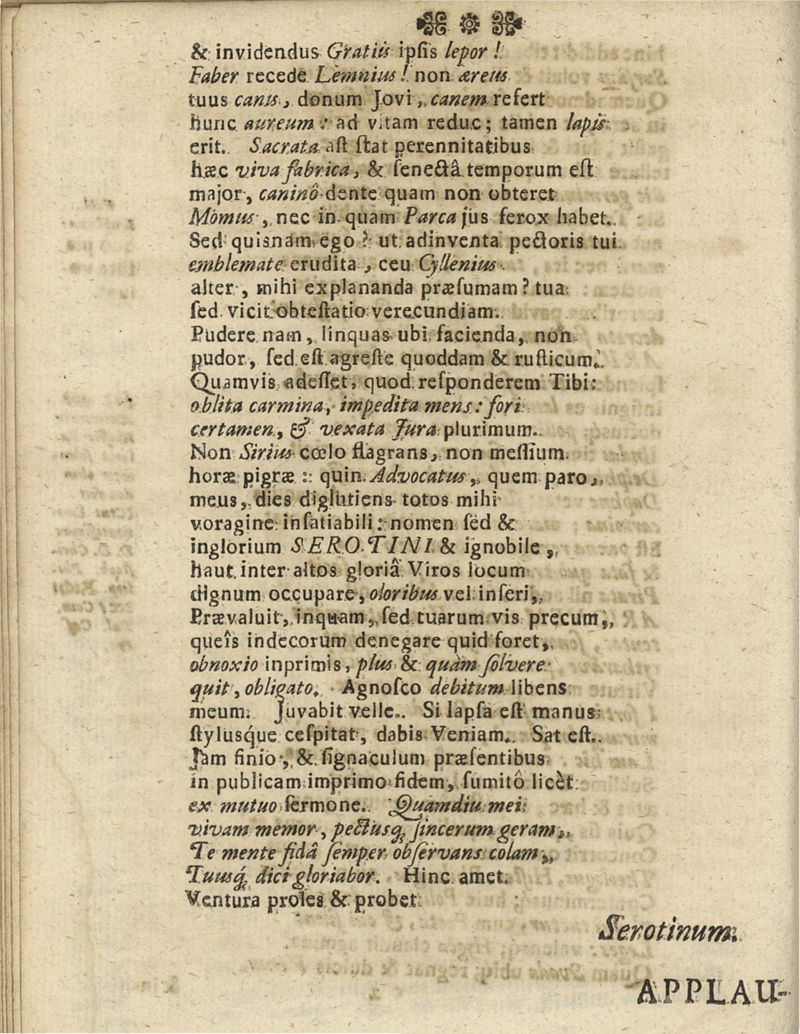 & invidendus Gratiis ipſis lepor !
Faber recede Lemnius ! non æreus
tuus canis, donum Jovi, canem refert
hunc aureum : ad vitam redux ; tamen lapis
erit. Sacrata aſt ſtat perennitatibus
hæc viva fabrica, & ſenectâ temporum eſt
major, caninô dente quam non obteret
Momus, nec in quam Parca jus ferox habet.
Sed quisnam ego ? ut adinventa pectoris tui
emblemate erudita, ceu Cyllenius
alter, mihi explananda præſumam ? tua
ſed vicit obteſtatio verecundiam.
Pudere nam, linquas ubi facienda, non
pudor, ſed eſt agreſte quoddam & ruſticum.
Quamvis adeſſet, quod reſponderem Tibi:
oblita carmina, impedita mens : fori
certamen, & vexata Jura plurimum.
Non Sirius cœlo flagrans, non meſſium
horæ pigræ : quin Advocatus, quem paro,
meus, dies diglutiens totos mihi
voragine inſatiabili : nomen ſed &
inglorium SEROTINI & ignobile,
haut inter altos gloriâ Viros locum
dignum occupare, oloribus vel inſeri,
Prævaluit, inquam, ſed tuarum vis precum,
queîs indecorum denegare quid foret,
obnoxio inprimis, plus & quàm ſolvere
quit, obligato. Agnoſco debitum libens
meum. Juvabit velle. Si lapſa eſt manus
ſtylusque ceſpitat, dabis Veniam. Sat eſt.
Jam finio, & ſignaculum præſentibus
in publicam imprimo fidem, ſumitô licèt
ex mutuo ſermone. Quamdiu mei
vivam memor, pectusq́; ſincerum geram,
Te mente fidâ ſemper obſervans colam,
Tuusq́; dici gloriabor. Hinc amet
Ventura proles & probet
Serotinum.
APPLAU-